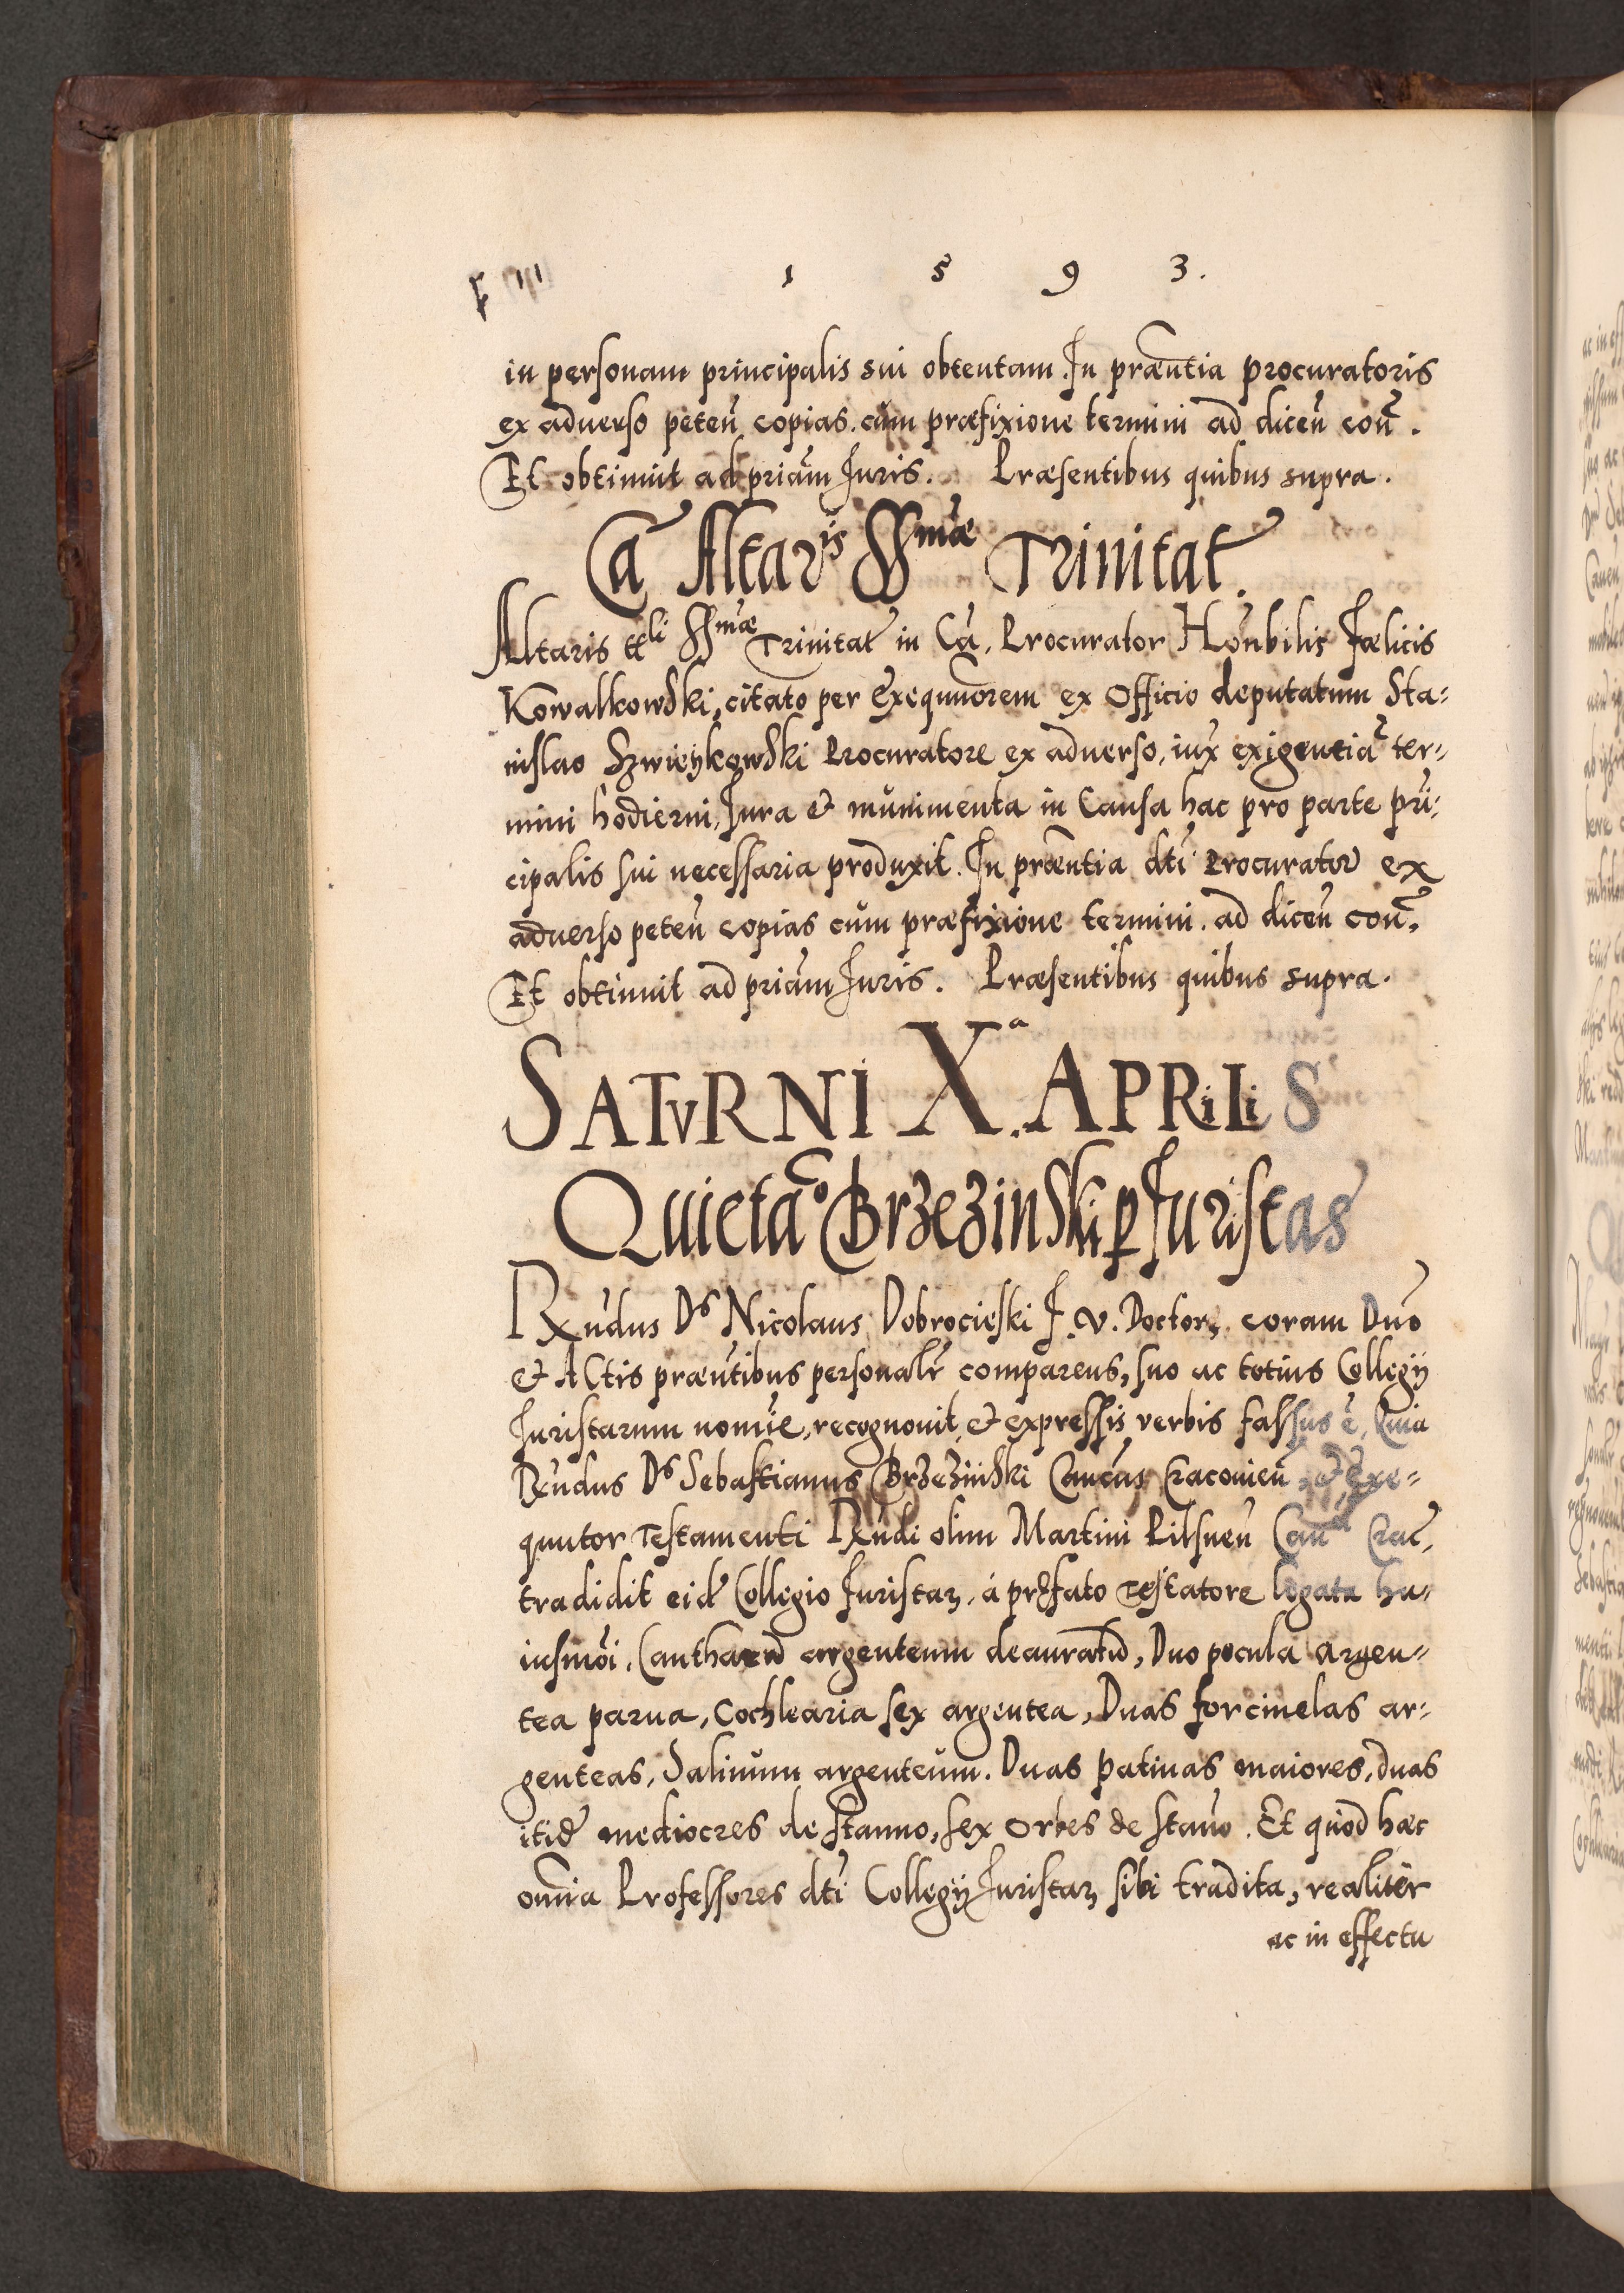 1 5 9 3.
in personam principalis sui obtentam. In præntia procuratoris
ex aduerso peteñ copias. cum præfixione termini ad diceñ coñ.
Et obtinuit ad priam Iuris. Præsentibus quibus supra.
Ca Altaris SSmæ Trinitat.
Altaris ttli SSmæ Trinitat in Ca, Procurator Honbilis Fœlicis
Kowalkowski, citato per Exequutorem ex Officio deputatum Sta:
nislao Szwieykowski Procuratore ex aduerso, iux exigentiã ter=
mini hodierni, Iura & munimenta in Causa hac pro parte prī:
cipalis sui necessaria produxit. In præntia dti Procurator ex
aduerso peteñ copias cum præfixione termini. ad diceñ coñ.
Et obtinuit ad priam Iuris. Præsentibus quibus supra.
SATVRNI Xa. APRILIS
Quietão Brzezinski p Iuristas
Rxndus Ds Nicolaus Dobrocieski I. V. Doctor, coram Dno
& Actis præntibus personalr comparens, suo ac totius Collegij
Iuristarum nomie, recognouit & expressis verbis fassus ẽ, Quia
Rxndus Ds Sebastianus Brzezinski Cancus Cracouieñ, & Exe=
quutor Testamenti Rxndi olim Martini Pilsneñ Can Crac,
tradidit eid Collegio Iuristaꝝ, á præfato Testatore legata hu=
iusmõi, Cantharũ argenteum deauratũ, Duo pocula argen=
tea parua, Cochlearia sex argentea, Duas forcinelas ar=
genteas, Salinum argenteum. Duas patinas maiores, duas
itid mediocres de stanno, sex orbes de stano. Et quod hæc
omnia Professores dti Collegij Iuristaꝝ sibi tradita, realiter
ac in effectu